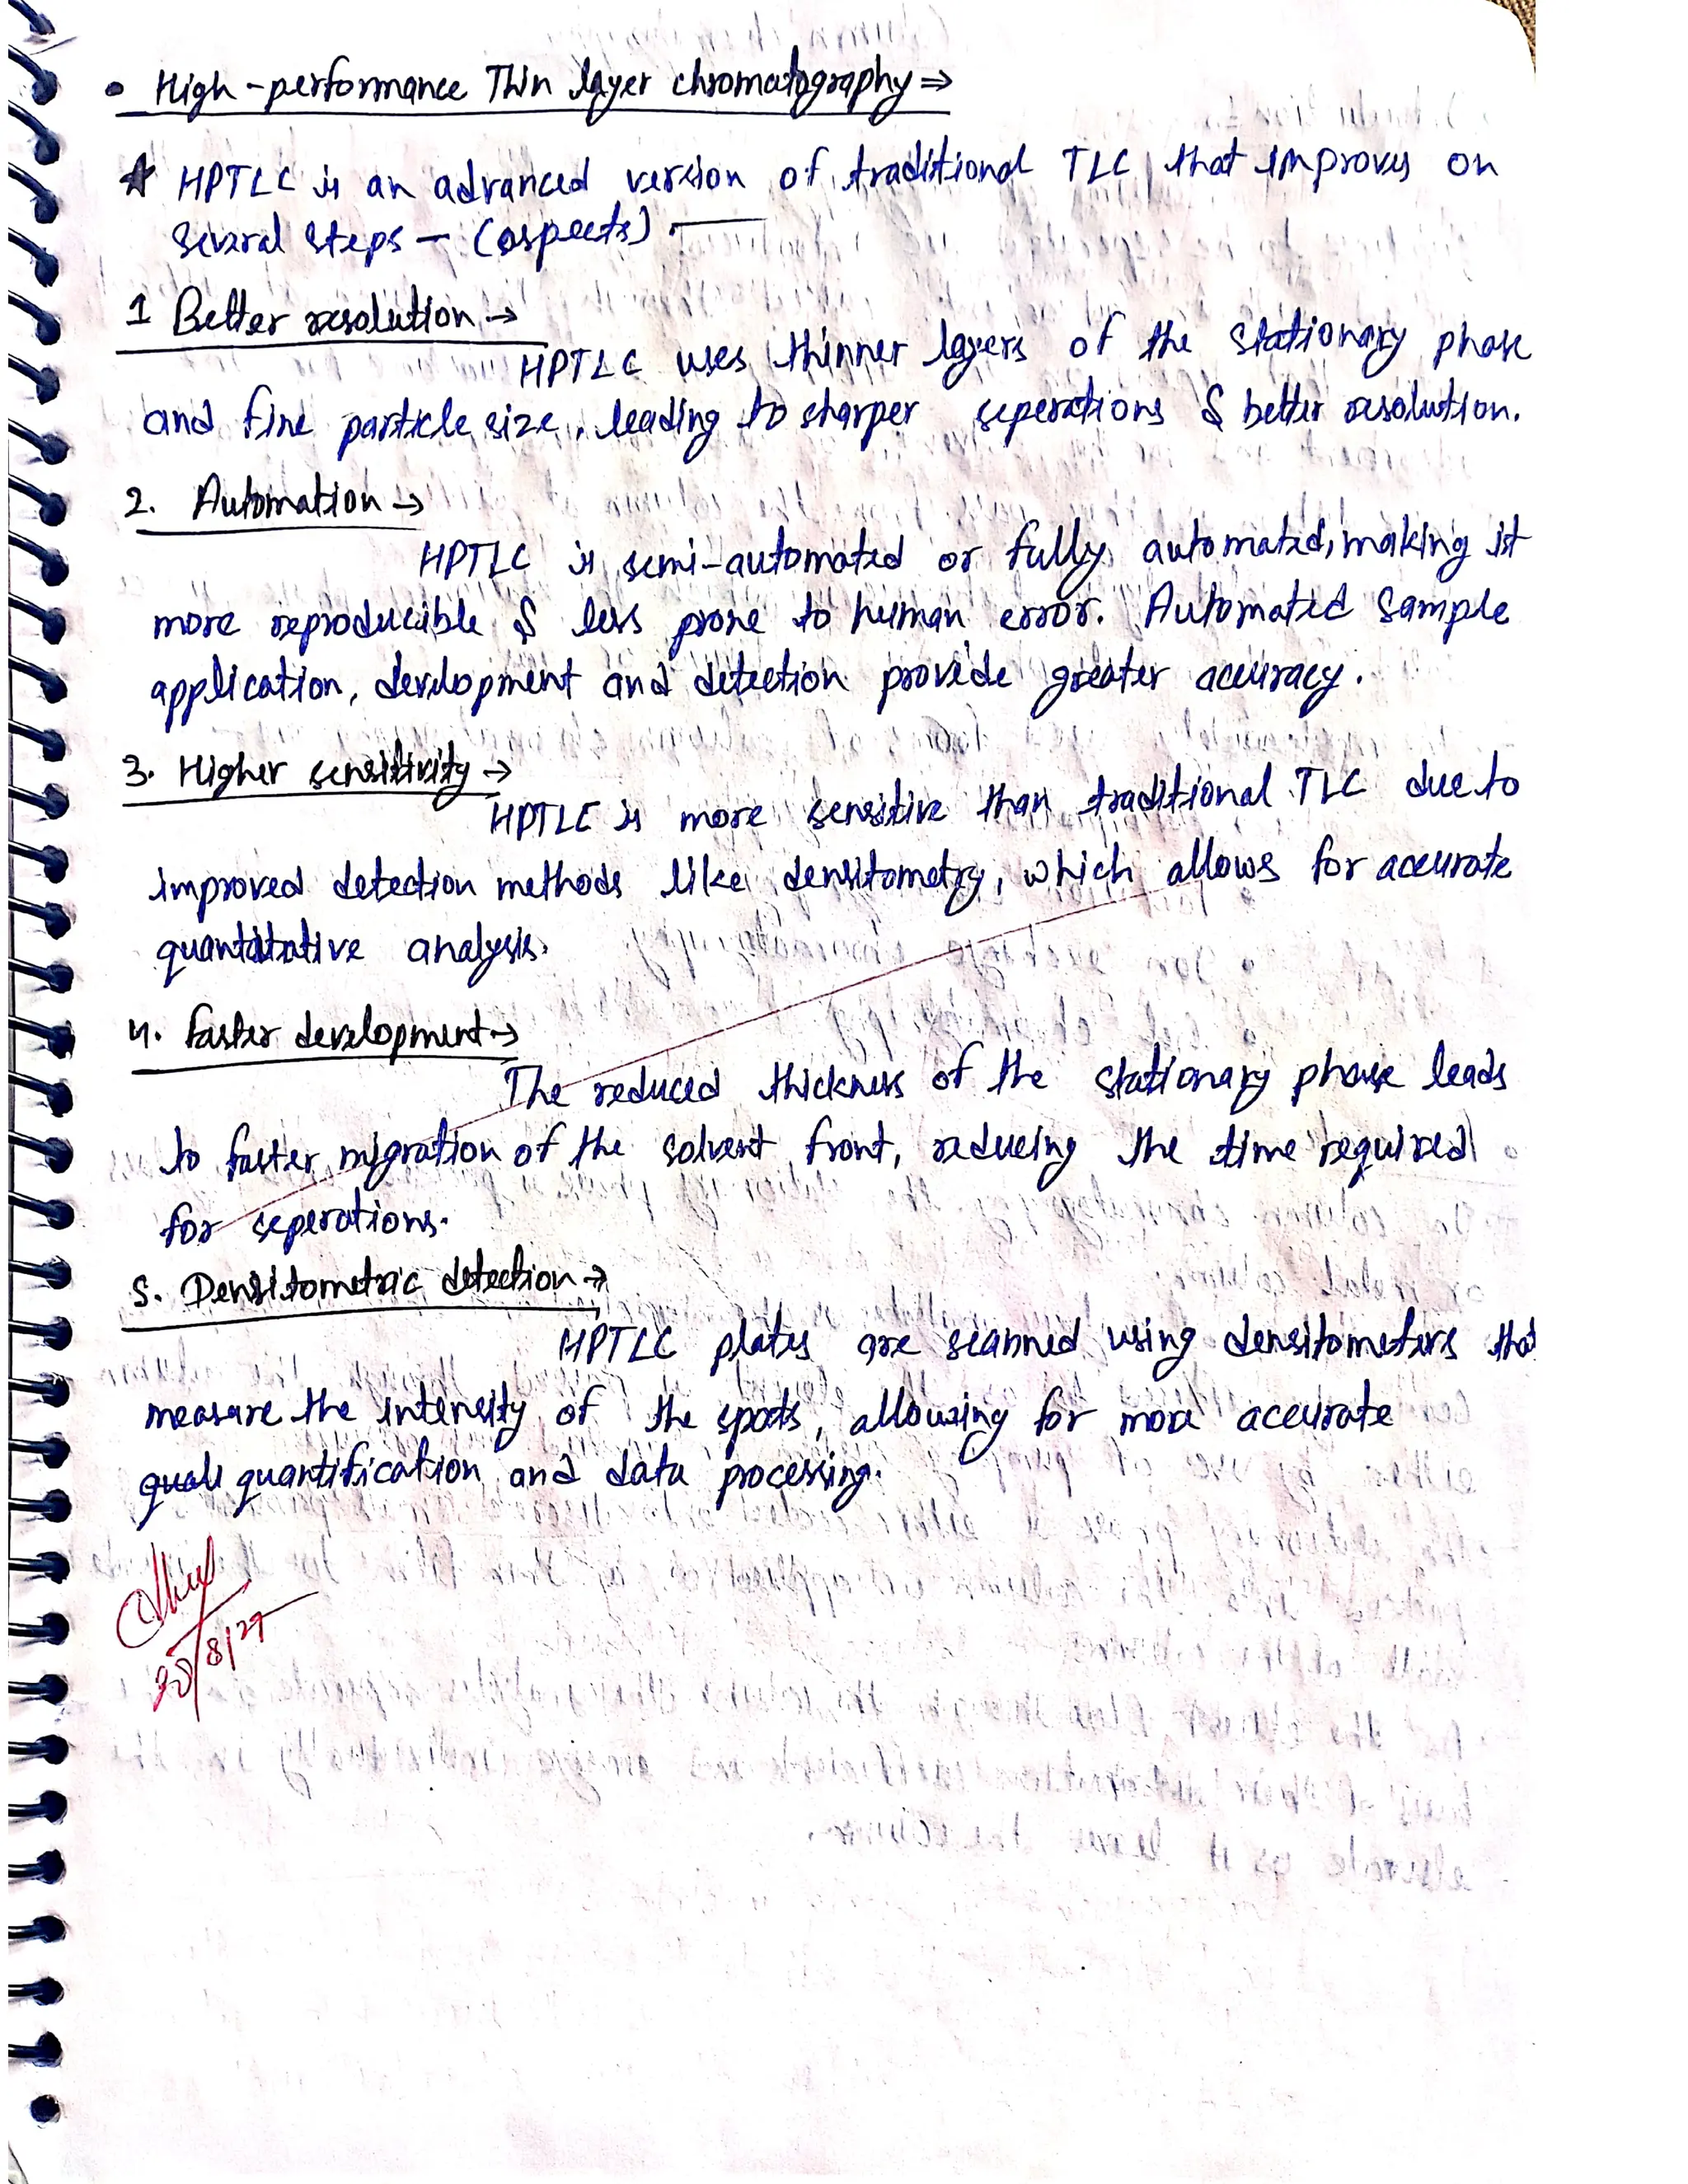 • High-performance Thin layer chromatography ⇒
☆ HPTLC is an advanced version of traditional TLC that improves on
several steps – (aspects). ——
1 Better resolution →
HPTLC uses thinner layers of the stationary phase
and fine particle size, leading to sharper seperations & better resolution.
2. Automation →
HPTLC is semi-automated or fully automated, making it
more reproducible & less prone to human error. Automated sample
application, development and detection provide greater accuracy.
3. Higher sensitivity →
HPTLC is more sensitive than traditional TLC due to
improved detection methods like densitometry, which allows for accurate
quantitative analysis.
4. Faster development →
The reduced thickness of the stationary phase leads
to faster migration of the solvent front, reducing the time required
for seperations.
5. Densitometric detection →
HPTLC plates are scanned using densitometers that
measure the intensity of the spots, allowing for more accurate
quali quantification and data processing.